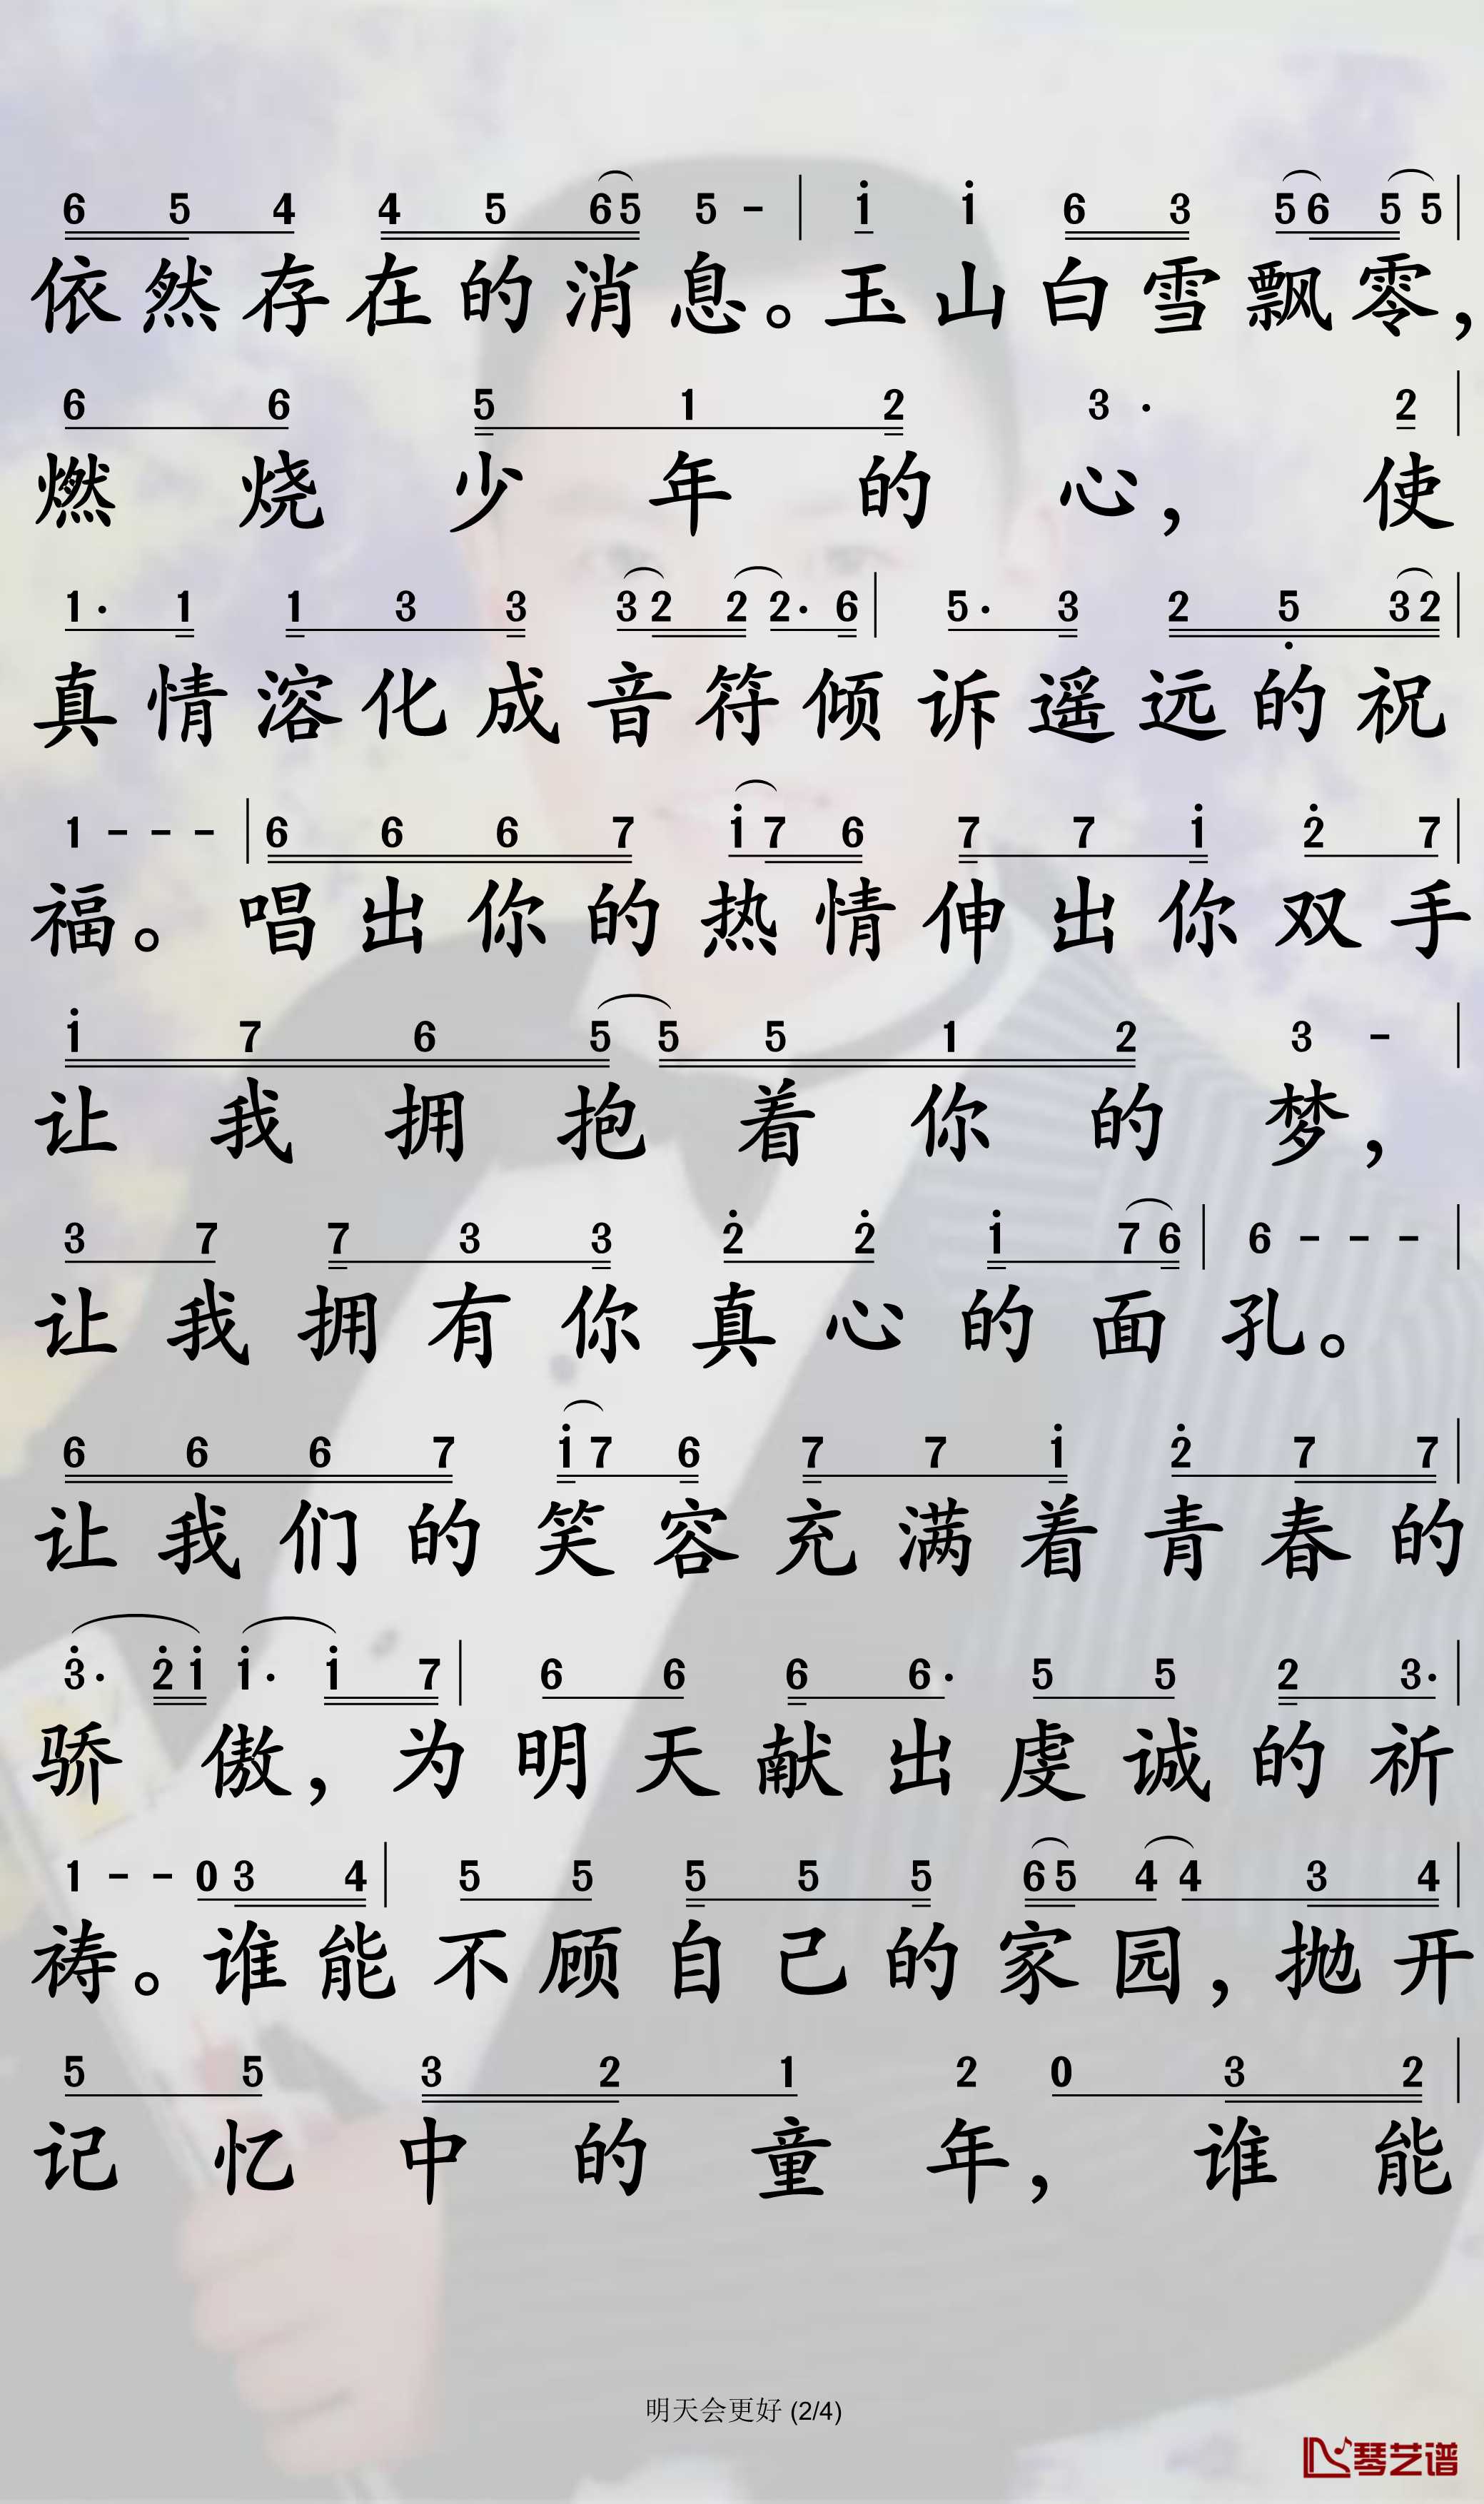 6 5 4 4 5 6 5 5 - | i i 6 3 5 6 5 5 |
依然存在的消息。玉山白雪飘零，
6 6 5 1 2 3 · 2 |
燃烧少年的心，使
1· 1 1 3 3 3 2 2 2· 6 | 5· 3 2 5 3 2 |
真情溶化成音符倾诉遥远的祝
1 - - - | 6 6 6 7 i 7 6 7 7 i 2 7 |
福。唱出你的热情伸出你双手
i 7 6 5 5 5 1 2 3 - |
让我拥抱着你的梦，
3 7 7 3 3 2 2 i 7 6 | 6 - - - |
让我拥有你真心的面孔。
6 6 6 7 i 7 6 7 7 i 2 7 7 |
让我们的笑容充满着青春的
3· 2 i i· i 7 | 6 6 6 6· 5 5 2 3· |
骄傲，为明天献出虔诚的祈
1 - - 0 3 4 | 5 5 5 5 5 6 5 4 4 3 4 |
祷。谁能不顾自己的家园，抛开
5 5 3 2 1 2 0 3 2 |
记忆中的童年，谁能
明天会更好 (2/4)
琴艺谱